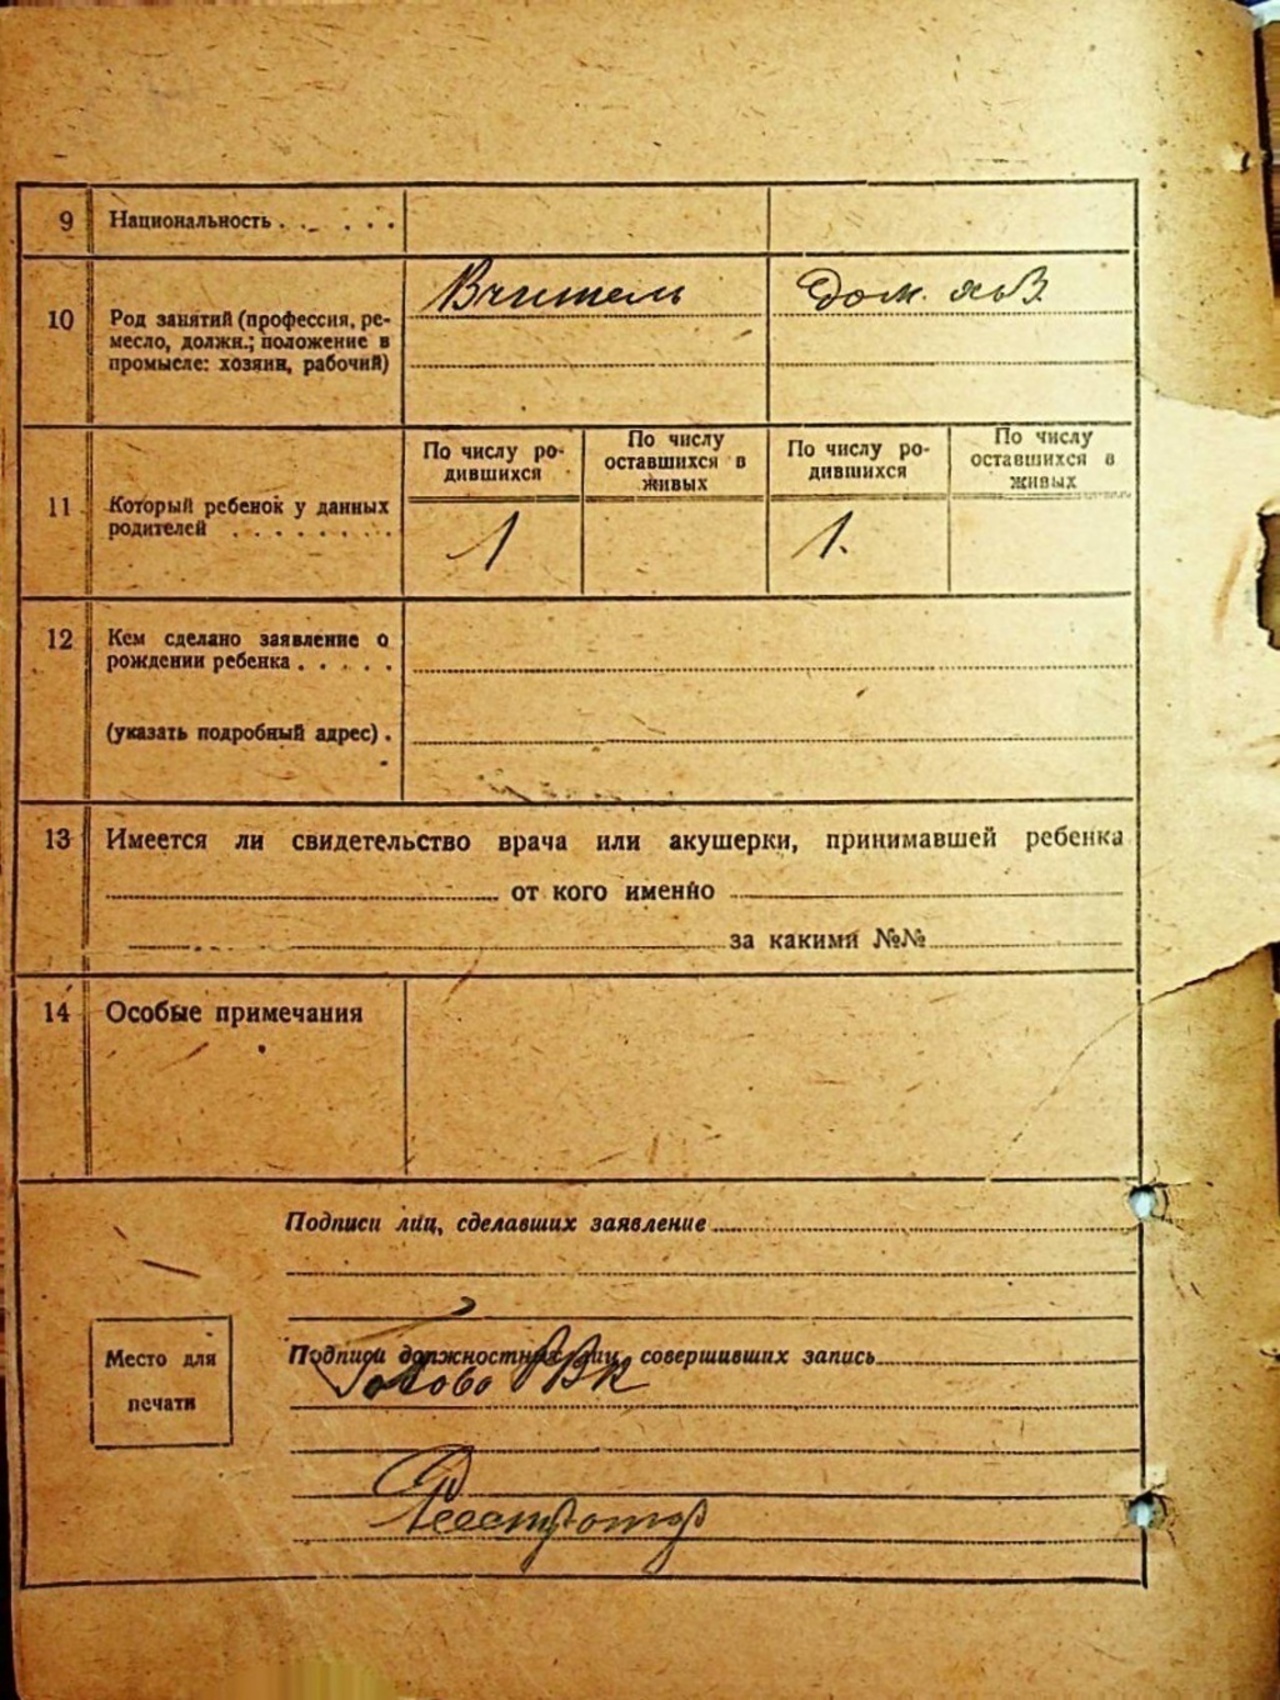 9 Национальность . . . . . .
Вчитель
10 Род занятий (профессия, ре-
месло, должн.; положение в
промысле: хозяин, рабочий)
Дом.
По числу ро-
дившихся
По числу
оставшихся в
живых
По числу ро-
дившихся
По числу
оставшихся в
живых
11 Который ребенок у данных
родителей . . . . . . . .
1
1.
12 Кем сделано заявление о
рождении ребенка . . . . .
(указать подробный адрес) .
13 Имеется ли свидетельство врача или акушерки, принимавшей ребенка
от кого именно
за какими №№
14 Особые примечания
Подписи лиц, сделавших заявление
Подписи должностных лиц, совершивших запись
Голово РВК
Место для
печати
Реестратор